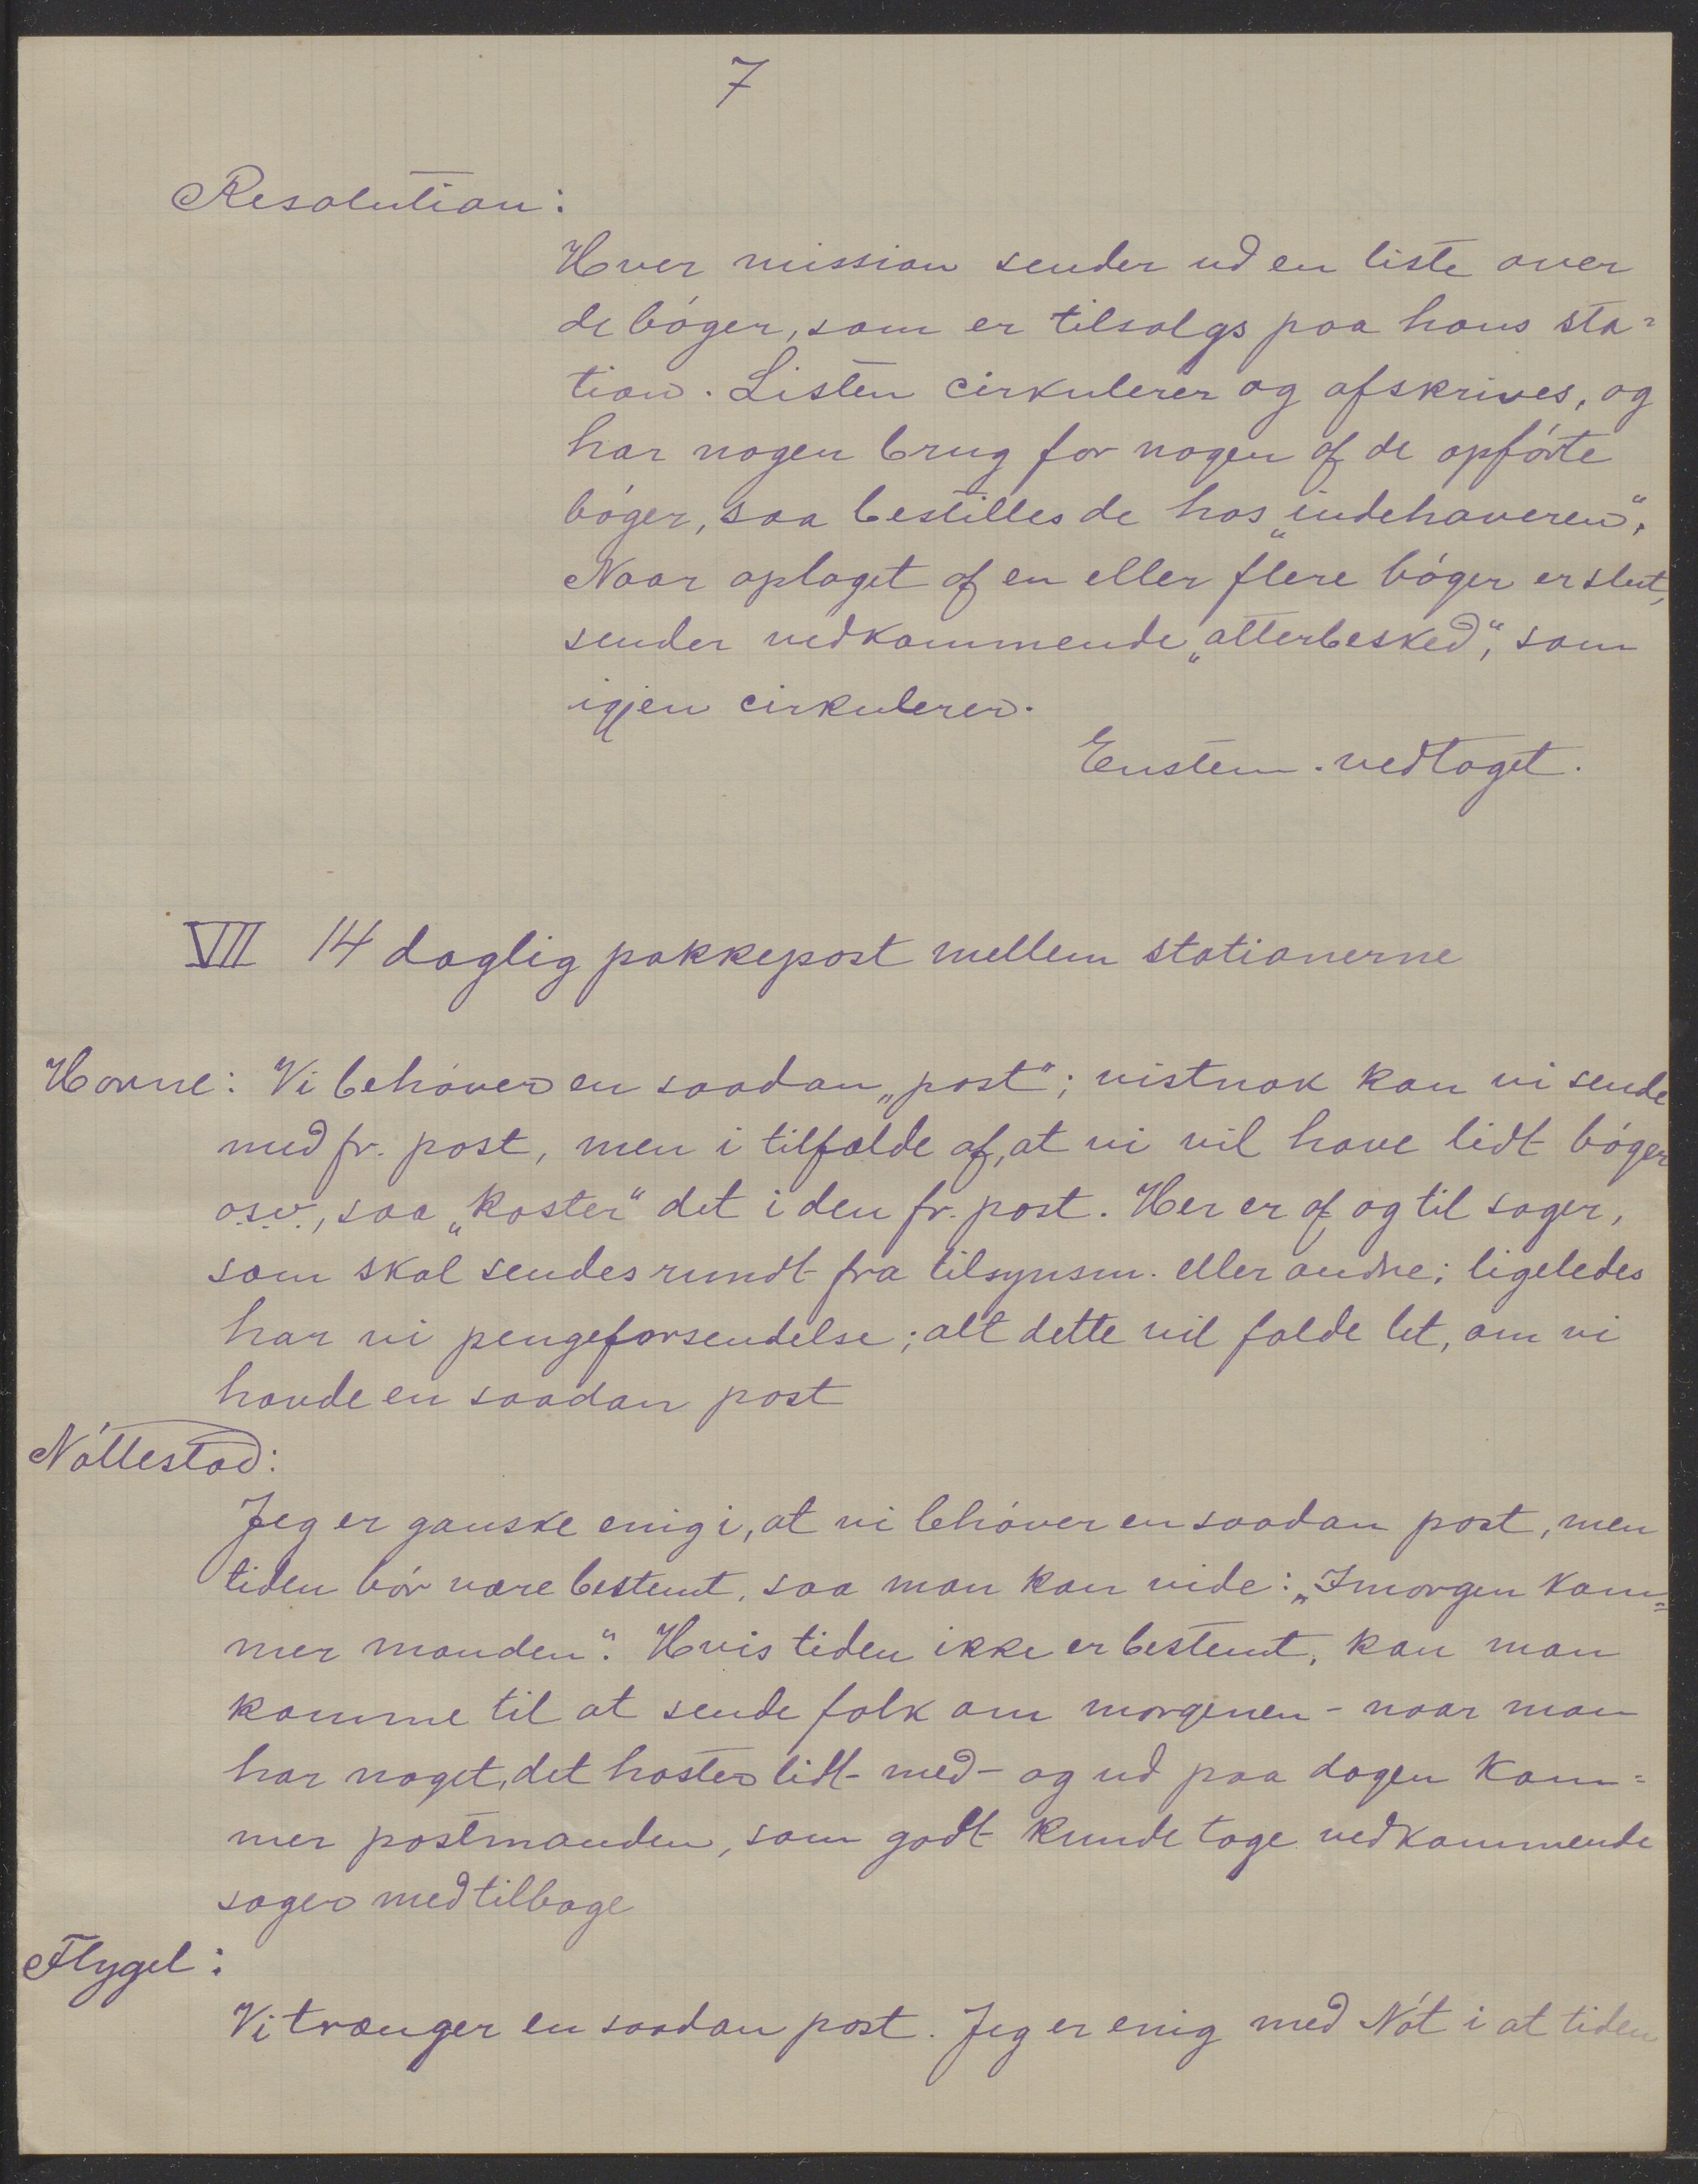 7
Resolution:
Hver mission sender ud en liste over
de bóger, som er tilsalgs paa hans sta=
tion. Listen cirkulerer og afskrives, og
har nogen brug for nogen af de opfórte
bóger, saa bestilles de hos „indehaveren“.
Naar oplaget af en eller flere bóger er slut,
sender vedkommende „atterbesked“, som
igjen cirkulerer.
Enstem. vedtaget.
VII 14 daglig pakkepost mellem stationerne
Hovne: Vi behóver en saadan „post“; vistnok kan vi sende
med fr. post, men i tilfælde af, at vi vil have lidt bóger
o.s.v., saa „koster“ det i den fr. post. Her er af og til sager,
som skal sendes rundt fra tilsynsm. eller andre; ligeledes
har vi pengeforsendelse; alt dette vil falde let, om vi
havde en saadan post
Nóttestad:
Jeg er ganske enig i, at vi behóver en saadan post, men
tiden bór være bestemt, saa man kan vide: „Imorgen kom=
mer manden“. Hvis tiden ikke er bestemt, kan man
komme til at sende folk om morgenen - naar man
har noget, det haster lidt med - og ud paa dagen kom=
mer postmanden, som godt kunde tage vedkommende
sager med tilbage
Flygel:
Vi trænger en saadan post. Jeg er enig med Nót i at tiden